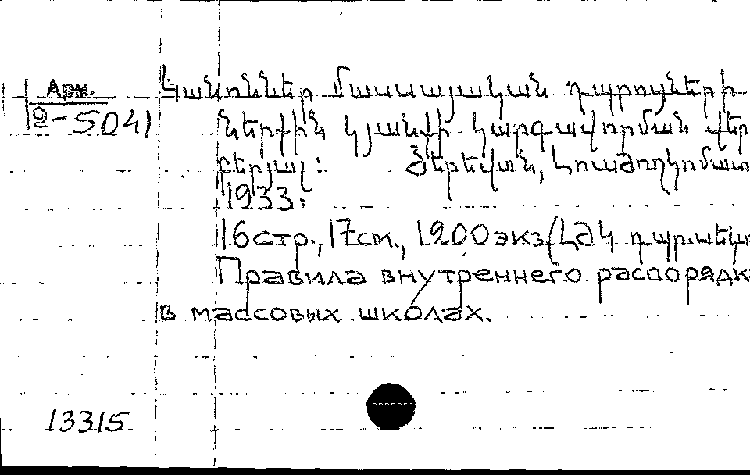 Арм.
Կանոններ մասսայական դպրոցների
ֆ-5041
ներքին կյանքի կարգավորման վեր
բերյալ: Յերեվան, Լուսժողկոմատ
1933:
16стр., 17см., 1200экз. (ՀՍԽՀ
Правила внутреннего распорядк
в массовых школах.
13315